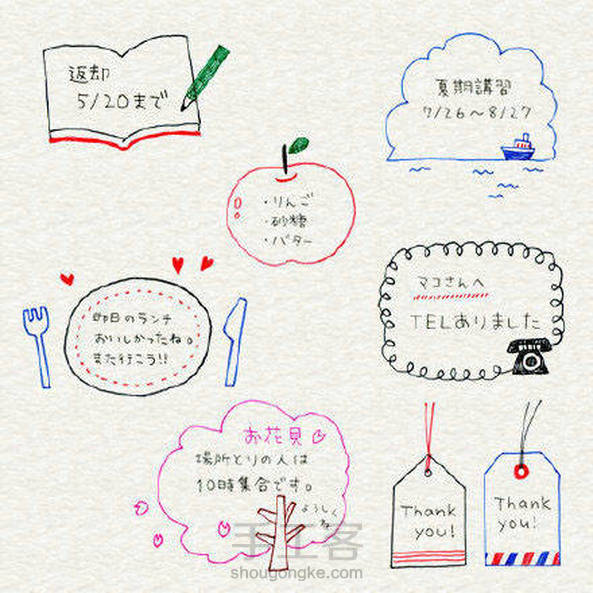 返却
5/20まで
夏期講習
7/26〜8/27
・りんご
・砂糖
・バター
マコさんへ
TELありました
昨日のランチ
おいしかったね。
また行こう!!
お花見
場所とりの人は
10時集合です。
よろしく
ね
Thank
you!
Thank
you!
手工客
shougongke.com